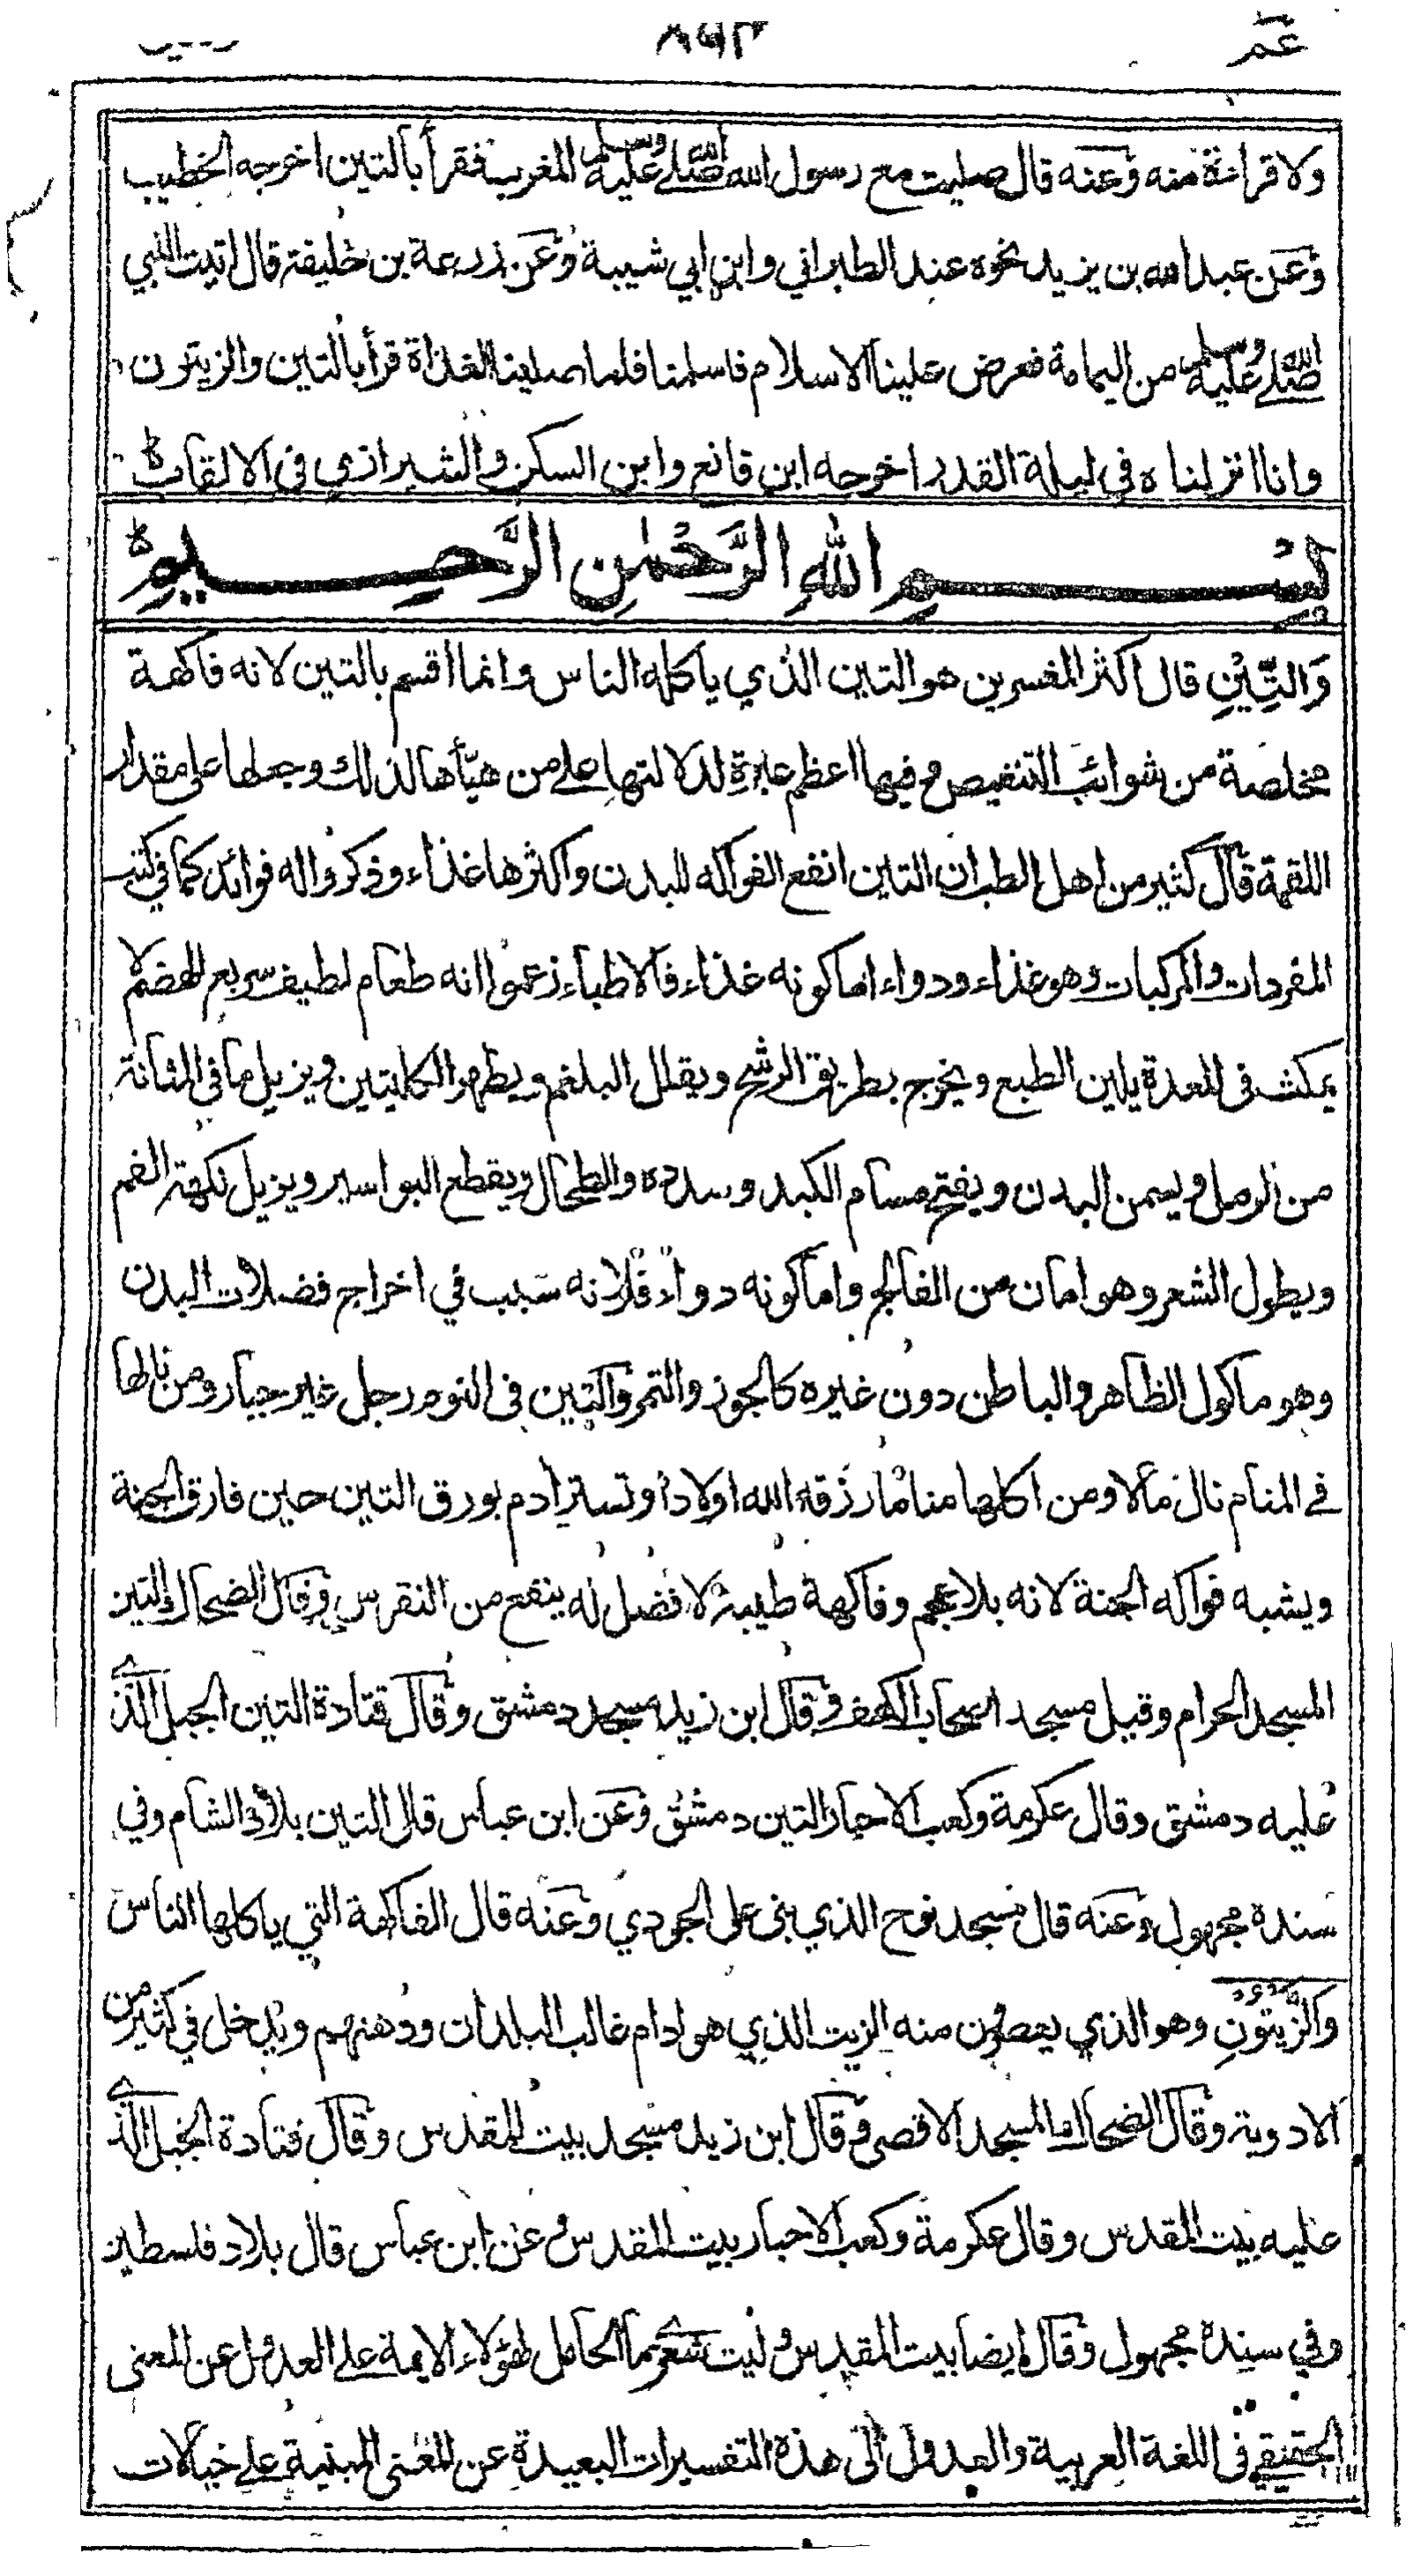 عم ٨٦٣
ولا قراءة منه وعنه قال صليت مع رسول الله صلى الله عليه وسلم المغرب فقرأ بالتين اخرجه الخطيب
وعن عبد الله بن يزيد نحوه عند الطبراني وابن ابي شيبة وعن زرعة بن خليفة قال اتيت النبي
صلى الله عليه وسلم من اليمامة فعرض علينا الاسلام فاسلمنا فلما صلينا الغداة قرأ بالتين والزيتون
وانا انزلناه في ليلة القدر اخرجه ابن قانع وابن السكن والشيرازي في الالقاب
بِسْمِ اللهِ الرَّحْمٰنِ الرَّحِيمِ
وَالتِّيْنِ قال اكثر المفسرين هو التين الذي ياكله الناس وانما اقسم بالتين لانه فاكهة
مخلصة من شوائب التنغيص وفيها اعظم عبرة لدلالتها على من هيأها لذلك وجعلها على مقدار
اللقمة قال كثير من اهل الطب ان التين انفع الفواكه للبدن واكثرها غذاء وذكروا له فوائد كما في كتب
المفردات والمركبات وهو غذاء ودواء اما كونه غذاء فالاطباء زعموا انه طعام لطيف سريع الهضم لا
يمكث في المعدة يلين الطبع ويخرج بطريق الرشح ويقلل البلغم ويطهر الكليتين ويزيل ما في المثانة
من الرمل ويسمن البدن ويفتح مسام الكبد وسدده والطحال ويقطع البواسير ويزيل نكهة الفم
ويطول الشعر وهو امان من الفالج واما كونه دواء فلانه سبب في اخراج فضلات البدن
وهو ماكول الظاهر والباطن دون غيره كالجوز والتمر والتين في النوم رجل غير جبار ومن نالها
في المنام نال مالا ومن اكلها مناما رزقه الله اولادا وتستر ادم بورق التين حين فارق الجنة
ويشبه فواكه الجنة لانه بلا عجم وفاكهة طيبة لا فضل له ينفع من النقرس وقال الضحاك التين
المسجد الحرام وقيل مسجد اصحاب الكهف وقال ابن زيد مسجد دمشق وقال قتادة التين الجبل الذي
عليه دمشق وقال عكرمة وكعب الاحبار التين دمشق وعن ابن عباس قال التين بلاد الشام وفي
سنده مجهول وعنه قال مسجد نوح الذي بنى على الجودي وعنه قال الفاكهة التي ياكلها الناس
وَالزَّيْتُونِ وهو الذي يعصرون منه الزيت الذي هو ادام غالب البلدان ودهنهم ويدخل في كثير من
الادوية وقال الضحاك المسجد الاقصى وقال ابن زيد مسجد بيت المقدس وقال قتادة الجبل الذي
عليه بيت المقدس وقال عكرمة وكعب الاحبار بيت المقدس وعن ابن عباس قال بلاد فلسطين
وفي سنده مجهول وقال ايضا بيت المقدس وليت شعري ما الحامل لهؤلاء الايمة على العدول عن المعنى
الحقيقي في اللغة العربية والعدول الى هذه التفسيرات البعيدة عن المعنى المبنية على خيالات